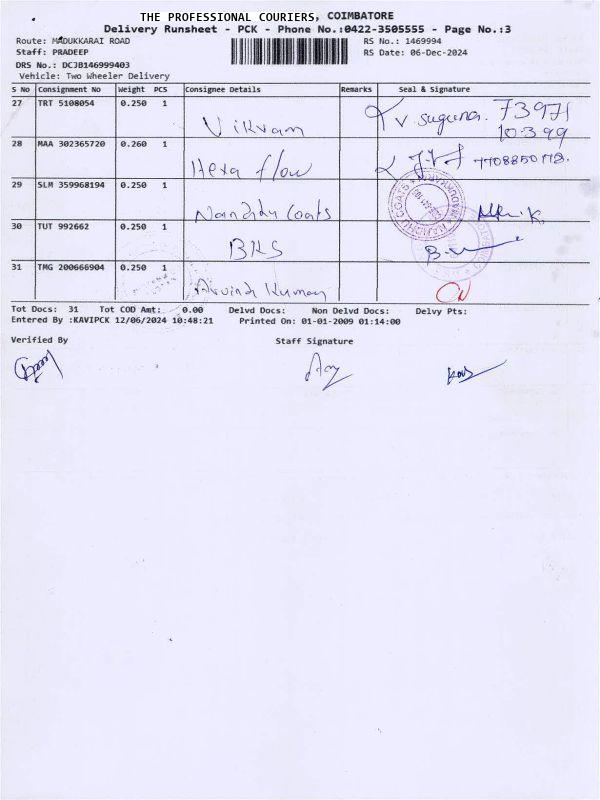 THE PROFESSIONAL COURIERS, COIMBATORE
Delivery Runsheet - PCK - Phone No.:0422-3505555 - Page No.:3
Route: MADUKKARAI ROAD RS No.: 1469994
Staff: PRADEEP RS Date: 06-Dec-2024
DRS No.: DCJB146999403
Vehicle: Two Wheeler Delivery
S No Consignment No Weight PCS Consignee Details Remarks Seal & Signature
27 TRT 5108054 0.250 1 Vikram V. suguna. 73971
10399
28 MAA 302365720 0.260 1 Hexa flow
29 SLM 359968194 0.250 1 Nandhu Coats
30 TUT 992662 0.250 1 BKS
31 TMG 200666904 0.250 1 Arvind Kumar
Tot Docs: 31 Tot COD Amt: 0.00 Delvd Docs: Non Delvd Docs: Delvy Pts:
Entered By :KAVIPCK 12/06/2024 10:48:21 Printed On: 01-01-2009 01:14:00
Verified By Staff Signature